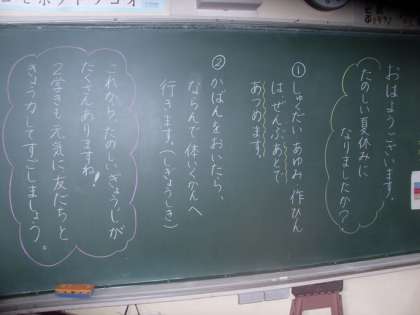 おはようございます。
たのしい夏休みに
なりましたか？
①しゅくだい あゆみ 作ひん
はぜんぶあとで
あつめます。
②かばんをおいたら、
ならんで体いくかんへ
行きます。(しぎょうしき)
これから、たのしいぎょうじが
たくさんありますね!
2学きも元気に友だちと
きょう力してすごしましょう。